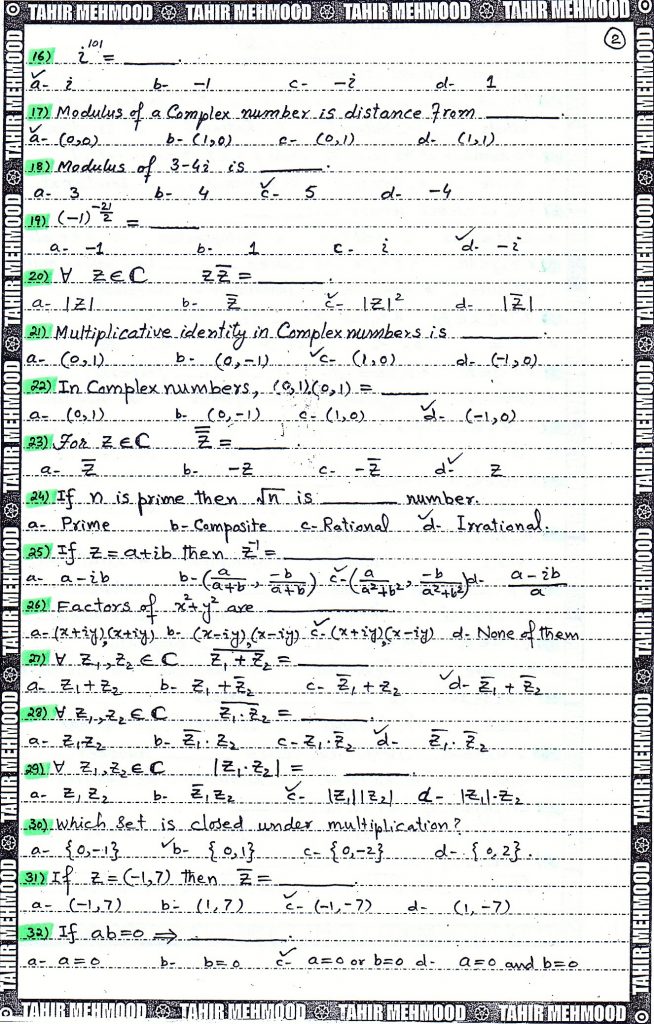 TAHIR MEHMOOD TAHIR MEHMOOD TAHIR MEHMOOD TAHIR MEHMOOD
2
16) i¹⁰¹ = ____.
✓a- i b- -1 c- -i d- 1
17) Modulus of a Complex number is distance from ____.
✓a- (0,0) b- (1,0) c- (0,1) d- (1,1)
18) Modulus of 3-4i is ____.
a- 3 b- 4 ✓c- 5 d- -4
19) (-1)^(-21/2) = ____
a- -1 b- 1 c- i ✓d- -i
20) ∀ Z∈C ZZ̅ = ____.
a- |Z| b- Z̅ ✓c- |Z|² d- |Z̅|
21) Multiplicative identity in Complex numbers is ____.
a- (0,1) b- (0,-1) ✓c- (1,0) d- (-1,0)
22) In Complex numbers, (0,1)(0,1) = ____
a- (0,1) b- (0,-1) c- (1,0) ✓d- (-1,0)
23) For Z∈C Z̿ = ____.
a- Z̅ b- -Z c- -Z̅ d-✓ Z
24) If n is prime then √n is ____ number.
a- Prime b- Composite c- Rational ✓d- Irrational.
25) If Z = a+ib then Z⁻¹ = ____
a- a-ib b- (a/(a+b), -b/(a+b)) ✓c- (a/(a²+b²), -b/(a²+b²)) d- (a-ib)/a
26) Factors of x²+y² are ____
a- (x+iy),(x+iy) b- (x-iy),(x-iy) ✓c- (x+iy),(x-iy) d- None of them
27) ∀ Z₁,Z₂∈C \overline{Z₁+Z₂} = ____
a- Z₁+Z₂ b- Z₁+Z̅₂ c- Z̅₁+Z₂ ✓d- Z̅₁+Z̅₂
28) ∀ Z₁,Z₂∈C \overline{Z₁.Z₂} = ____.
a- Z₁Z₂ b- Z̅₁.Z₂ c- Z₁.Z̅₂ ✓d- Z̅₁.Z̅₂
29) ∀ Z₁,Z₂∈C |Z₁.Z₂| = ____.
a- Z₁Z₂ b- Z̅₁Z₂ ✓c- |Z₁||Z₂| d- |Z₁|.Z₂
30) Which set is closed under multiplication?
a- {0,-1} ✓b- {0,1} c- {0,-2} d- {0,2}.
31) If Z = (-1,7) then Z̅ = ____
a- (-1,7) b- (1,7) ✓c- (-1,-7) d- (1,-7)
32) If ab=0 ⇒ ____.
a- a=0 b- b=0 ✓c- a=0 or b=0 d- a=0 and b=0
TAHIR MEHMOOD TAHIR MEHMOOD TAHIR MEHMOOD TAHIR MEHMOOD
TAHIR MEHMOOD TAHIR MEHMOOD TAHIR MEHMOOD TAHIR MEHMOOD TAHIR MEHMOOD TAHIR MEHMOOD
TAHIR MEHMOOD TAHIR MEHMOOD TAHIR MEHMOOD TAHIR MEHMOOD TAHIR MEHMOOD TAHIR MEHMOOD